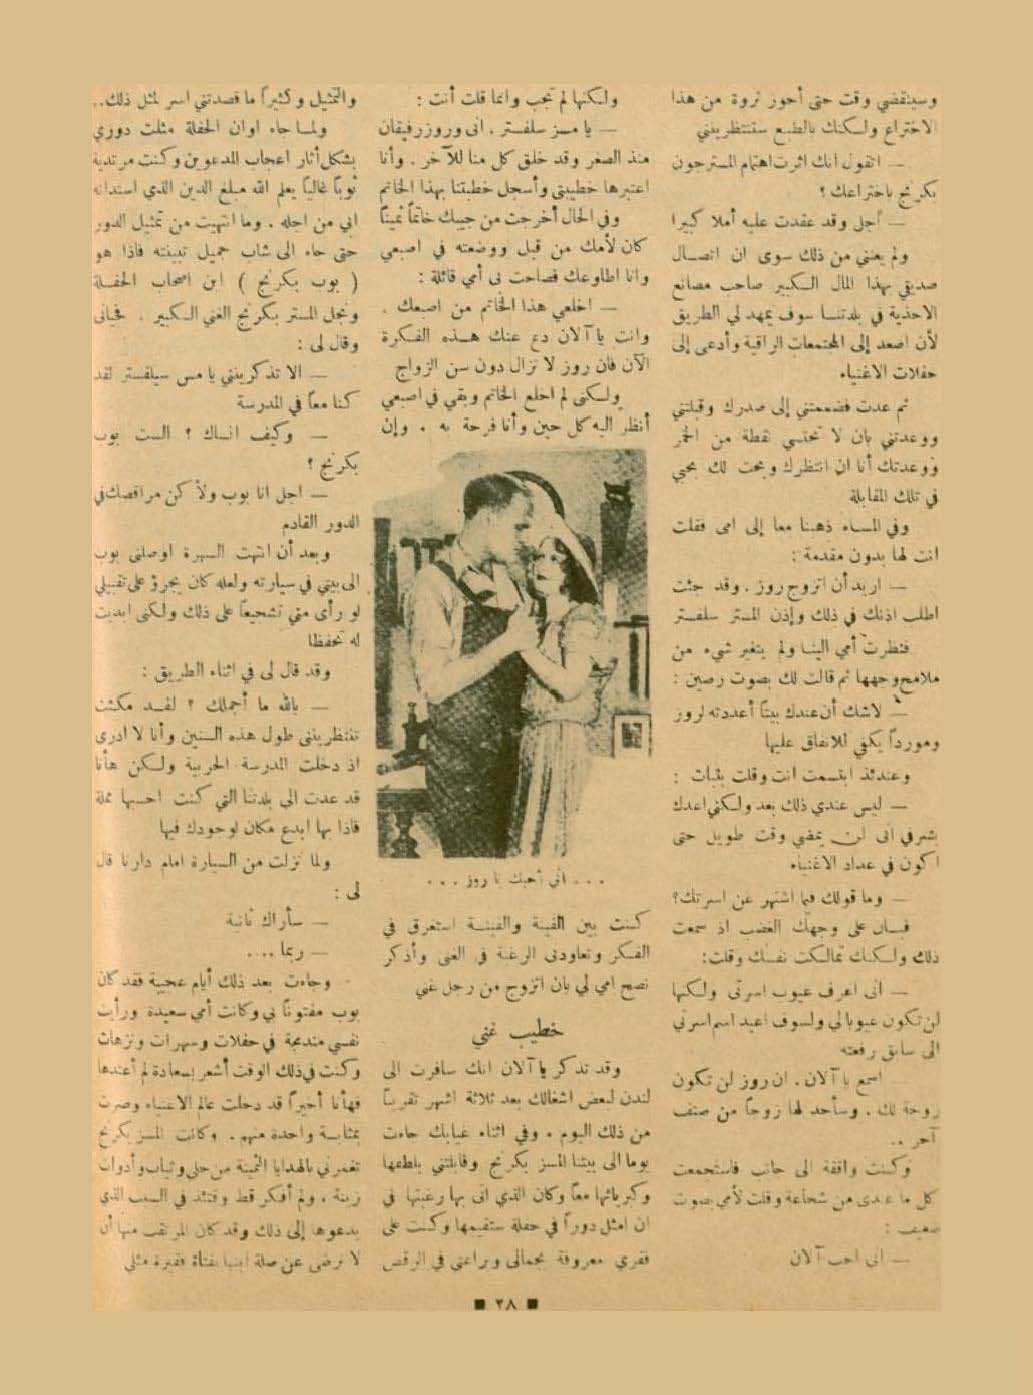 وسينقضي وقت حتى أحوز ثروة من هذا
الاختراع ولكنك بالطبع ستنتظريني
— اتقول انك اثرت اهتمام المستر جون
بكرنج باختراعك ؟
— أجل وقد عقدت عليه أملا كبيرا
ولم يعنني من ذلك سوى ان اتصال
صديقي بهذا المال الكبير صاحب مصانع
الاحذية في بلدتنا سوف يمهد لي الطريق
لأن اصعد إلى المجتمعات الراقية وأدعى إلى
حفلات الاغنياء
ثم عدت فضممتني إلى صدرك وقبلتني
ووعدتني بان لا تحتسي نقطة من الخمر
ووعدتك أنا ان انتظرك وبحت لك بحبي
في تلك المقابلة
وفي المساء ذهبنا معا إلى امى فقلت
انت لها بدون مقدمة :
— اريد أن اتزوج روز . وقد جئت
اطلب اذنك في ذلك وإذن المستر سلفستر
فنظرت أمي الينا ولم يتغير شيء من
ملامح وجهها ثم قالت لك بصوت رصين :
— لاشك أن عندك بيتاً أعددته لروز
وموردا يكفي للانفاق عليها
وعندئذ ابتسمت انت وقلت بثبات :
— ليس عندي ذلك بعد ولكني اعدك
بشرفي انى لن يمضي وقت طويل حتى
اكون في عداد الاغنياء
— وما قولك فيما اشتهر عن اسرتك؟
فبان على وجهك الغضب اذ سمعت
ذلك ولكنك تمالكت نفسك وقلت:
— انى اعرف عيوب اسرتى ولكنها
لن تكون عيوبا لي ولسوف اعيد اسم اسرتي
الى سابق رفعته
اسمع يا آلان . ان روز لن تكون
زوجة لك . وسأجد لها زوجاً من صنف
آخر ..
وكنت واقفة الى جانب فاستجمعت
كل ما عندى من شجاعة وقلت لأمي بصوت
ضعيف :
— انى احب آلان
ولكنها لم تجب وانما قلت أنت :
— يا مسز سلفستر . انى وروز رفيقان
منذ الصغر وقد خلق كل منا للآخر . وأنا
اعتبرها خطيبتي وأسجل خطبتنا بهذا الخاتم
وفي الحال أخرجت من جيبك خاتماً ثميناً
كان لأمك من قبل ووضعته في اصبعي
وانا اطاوعك فصاحت بى أمي قائلة :
— اخلعي هذا الخاتم من اصبعك .
وانت يا آلان دع عنك هذه الفكرة
الآن فان روز لا تزال دون سن الزواج
ولكنى لم اخلع الخاتم وبقي في اصبعي
أنظر اليه كل حين وأنا فرحة به . وإن
. . . انى أحبك يا روز . . .
كنت بين الفينة والفينة استغرق في
الفكر وتعاودنى الرغبة في الغنى وأذكر
نصح امي لي بان اتزوج من رجل غني
خطيب غني
وقد تذكر يا آلان انك سافرت الى
لندن لبعض اشغالك بعد ثلاثة اشهر تقريباً
من ذلك اليوم . وفي اثناء غيابك جاءت
يوما الى بيتنا المسز بكرنج وقابلتني بلطفها
وكبريائها معاً وكان الذي اتى بها رغبتها في
ان امثل دوراً في حفلة ستقيمها وكنت على
فقري معروفة بجمالى وبراعتي في الرقص
والتمثيل وكثيراً ما قصدتني اسر لمثل ذلك..
ولما جاء اوان الحفلة مثلت دوري
بشكل أثار اعجاب المدعوين وكنت مرتدية
ثوباً غالياً يعلم الله مبلغ الدين الذي استدانه
ابي من اجله . وما انتهيت من تمثيل الدور
حتى جاء الى شاب جميل تبينته فاذا هو
( بوب بكرنج ) ابن اصحاب الحفلة
ونجل المستر بكرنج الغني الكبير . فحيانى
وقال لى :
— الا تذكرينني يا مس سيلفستر لقد
كنا معاً في المدرسة
— وكيف انساك ؟ الست بوب
بكرنج ؟
— اجل انا بوب ولأكن مراقصك في
الدور القادم
وبعد أن انتهت السهرة اوصلنى بوب
الى بيتي في سيارته ولعله كان يجرؤ على تقبيلي
لو رأى مني تشجيعاً على ذلك ولكنى ابديت
له تحفظا
وقد قال لى في اثناء الطريق :
— بالله ما أجملك ؟ لقد مكثت
تنتظرينى طول هذه السنين وأنا لا ادرى
اذ دخلت المدرسة الحربية ولكن هأنا
قد عدت الى بلدتنا التي كنت احسبها مملة
فاذا بها ابدع مكان لوجودك فيها
ولما نزلت من السيارة امام دارنا قال
لى :
— سأراك ثانية
— ربما ....
وجاءت بعد ذلك أيام عجيبة فقد كان
بوب مفتوناً بي وكانت أمي سعيدة ورأيت
نفسي مندمجة في حفلات وسهرات ونزهات
وكنت في ذلك الوقت أشعر بسعادة لم أعتدها
فهأنا أخيراً قد دخلت عالم الاغنياء وصرت
بمثابة واحدة منهم . وكانت المسز بكرنج
تغمرني بالهدايا الثمينة من حلى وثياب وأدوات
زينة . ولم أفكر قط وقتئذ في السبب الذي
يدعوها إلى ذلك وقد كان المرتقب منها أن
لا ترضى عن صلة ابنها بفتاة فقيرة مثلي
■ ٢٨ ■